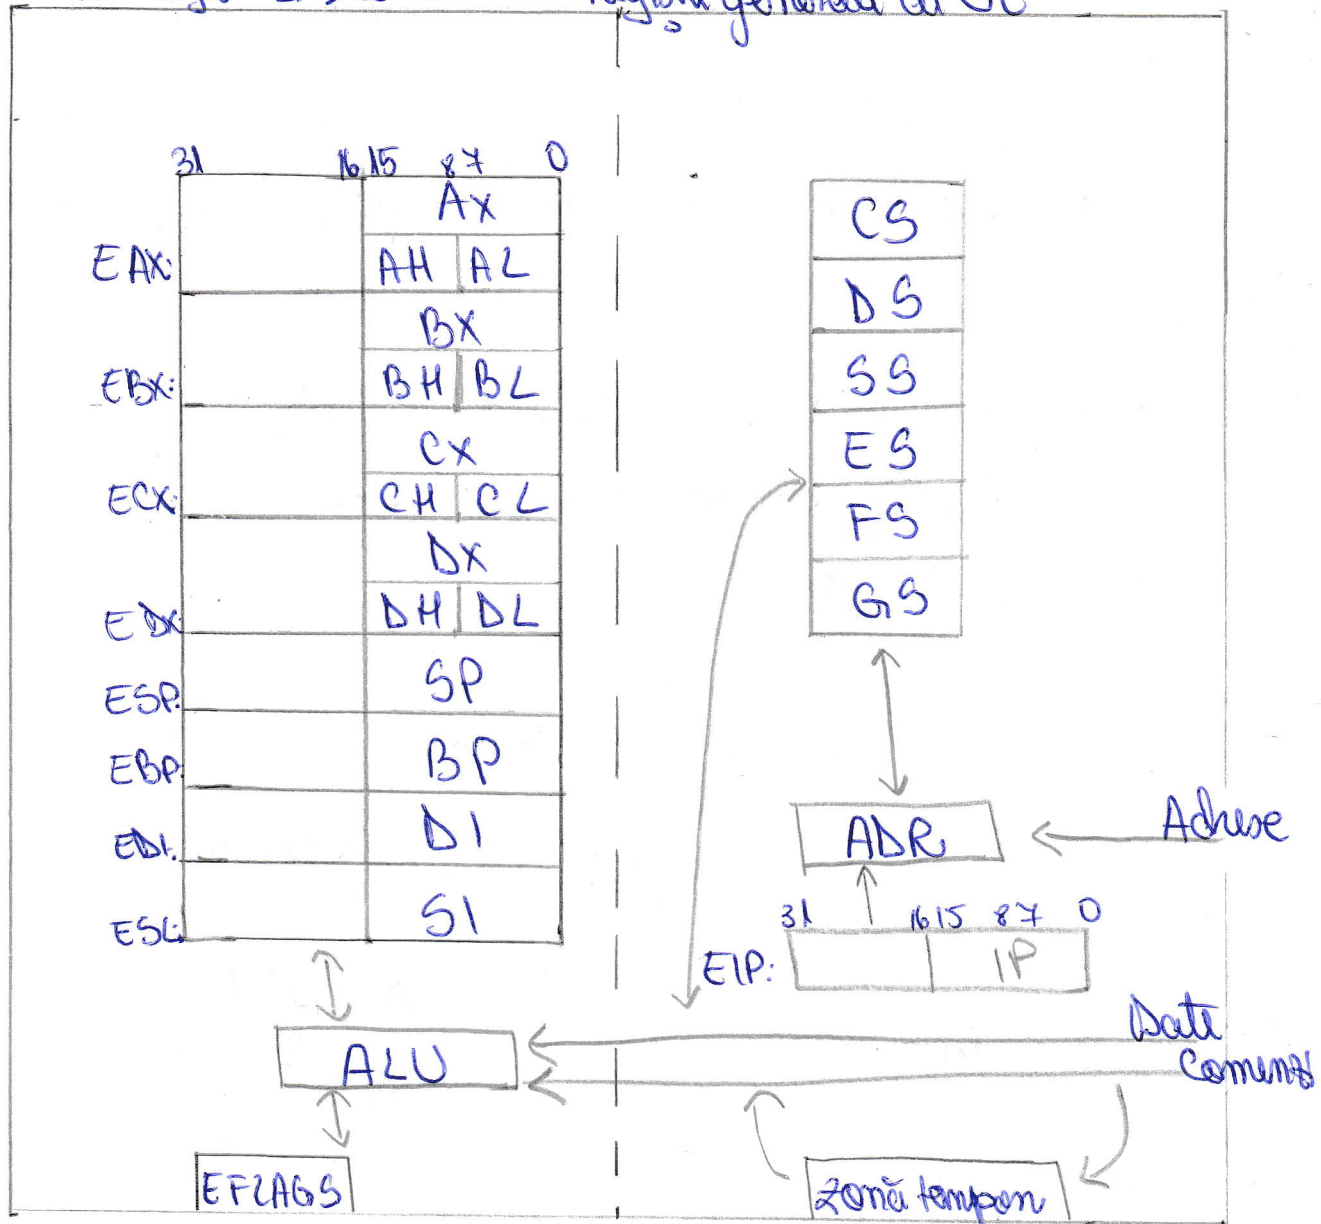 31 16 15 8 7 0
AX
EAX: AH AL
BX
EBX: BH BL
CX
ECX: CH CL
DX
EDX DH DL
ESP: SP
EBP: BP
EDI: DI
ESI: SI
ALU
EFLAGS
CS
DS
SS
ES
FS
GS
ADR
Adrese
31 16 15 8 7 0
EIP: IP
Date
Comenzi
Zonă tampon